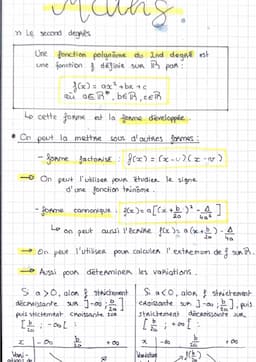 Maths
Le second degré
Une fonction polynôme du 2nd degré est
une fonction f définie sur ℝ par :
f(x) = ax² + bx + c
où a∈ℝ*, b∈ℝ, c∈ℝ
↳ cette forme est la forme développée.
* On peut la mettre sous d'autres formes :
- forme factorisé : f(x) = (x-u)(x-v)
→ On peut l'utiliser pour étudier le signe
d'une fonction trinôme.
- forme cannonique : f(x) = a[(x + b/2a)² - Δ/4a²]
↳ on peut aussi l'écrire f(x) = a(x + b/2a) - Δ/4a
→ On peut l'utiliser pour calculer l'extremum de f sur ℝ.
→ Aussi pour déterminer les variations.
Si a>0, alors f strictement
décroissante sur ]-∞ ; b/2a]
puis strictement croissante sur
[b/2a ; -∞[ :
x | -∞ b/2a +∞
Si a<0, alors f strictement
croissante sur ]-∞ ; b/2a], puis
strictement décroissante sur
[b/2a ; +∞[ :
x | -∞ b/2a +∞